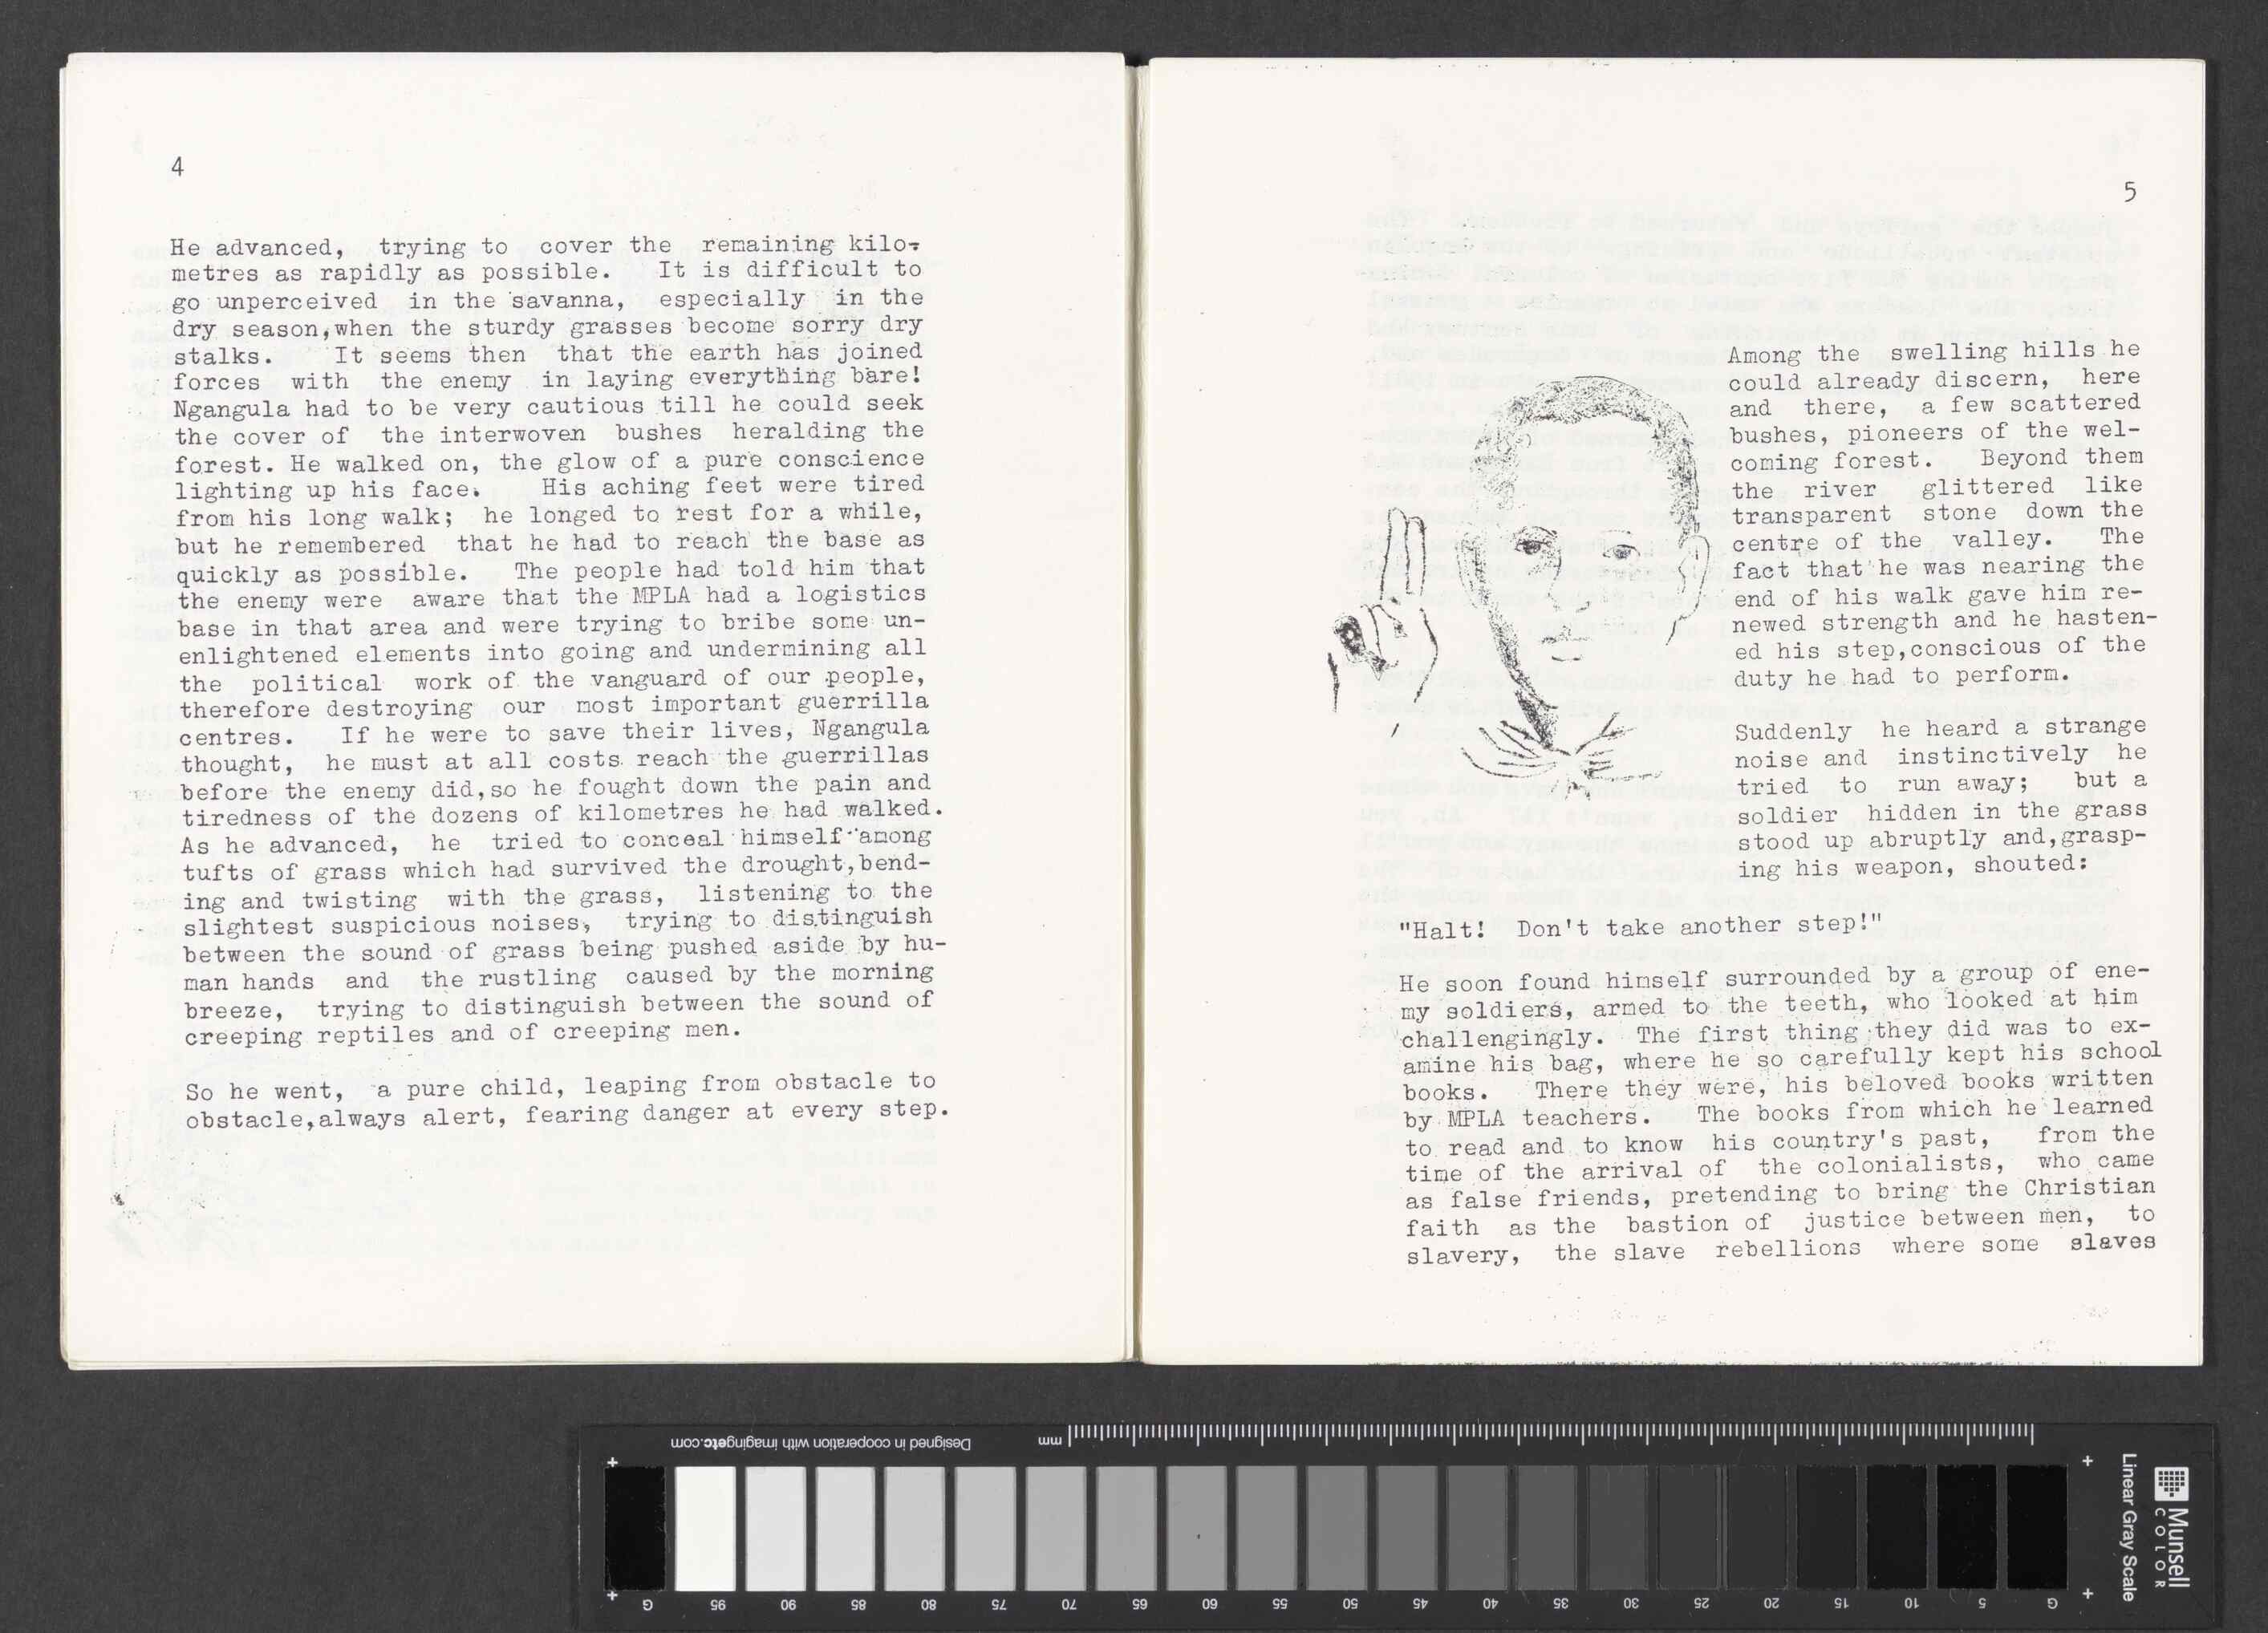 4
He advanced, trying to cover the remaining kilo-
metres as rapidly as possible. It is difficult to
go unperceived in the savanna, especially in the
dry season,when the sturdy grasses become sorry dry
stalks. It seems then that the earth has joined
forces with the enemy in laying everything bare!
Ngangula had to be very cautious till he could seek
the cover of the interwoven bushes heralding the
forest. He walked on, the glow of a pure conscience
lighting up his face. His aching feet were tired
from his long walk; he longed to rest for a while,
but he remembered that he had to reach the base as
quickly as possible. The people had told him that
the enemy were aware that the MPLA had a logistics
base in that area and were trying to bribe some un-
enlightened elements into going and undermining all
the political work of the vanguard of our people,
therefore destroying our most important guerrilla
centres. If he were to save their lives, Ngangula
thought, he must at all costs reach the guerrillas
before the enemy did,so he fought down the pain and
tiredness of the dozens of kilometres he had walked.
As he advanced, he tried to conceal himself among
tufts of grass which had survived the drought,bend-
ing and twisting with the grass, listening to the
slightest suspicious noises, trying to distinguish
between the sound of grass being pushed aside by hu-
man hands and the rustling caused by the morning
breeze, trying to distinguish between the sound of
creeping reptiles and of creeping men.
So he went, a pure child, leaping from obstacle to
obstacle,always alert, fearing danger at every step.
5
Among the swelling hills he
could already discern, here
and there, a few scattered
bushes, pioneers of the wel-
coming forest. Beyond them
the river glittered like
transparent stone down the
centre of the valley. The
fact that he was nearing the
end of his walk gave him re-
newed strength and he hasten-
ed his step,conscious of the
duty he had to perform.
Suddenly he heard a strange
noise and instinctively he
tried to run away; but a
soldier hidden in the grass
stood up abruptly and,grasp-
ing his weapon, shouted:
"Halt! Don't take another step!"
He soon found himself surrounded by a group of ene-
my soldiers, armed to the teeth, who looked at him
challengingly. The first thing they did was to ex-
amine his bag, where he so carefully kept his school
books. There they were, his beloved books written
by MPLA teachers. The books from which he learned
to read and to know his country's past, from the
time of the arrival of the colonialists, who came
as false friends, pretending to bring the Christian
faith as the bastion of justice between men, to
slavery, the slave rebellions where some slaves
Designed in cooperation with imagingetc.com
mm
G 95 90 85 80 75 70 65 60 55 50 45 40 35 30 25 20 15 10 5 G
Linear Gray Scale
Munsell
COLOR